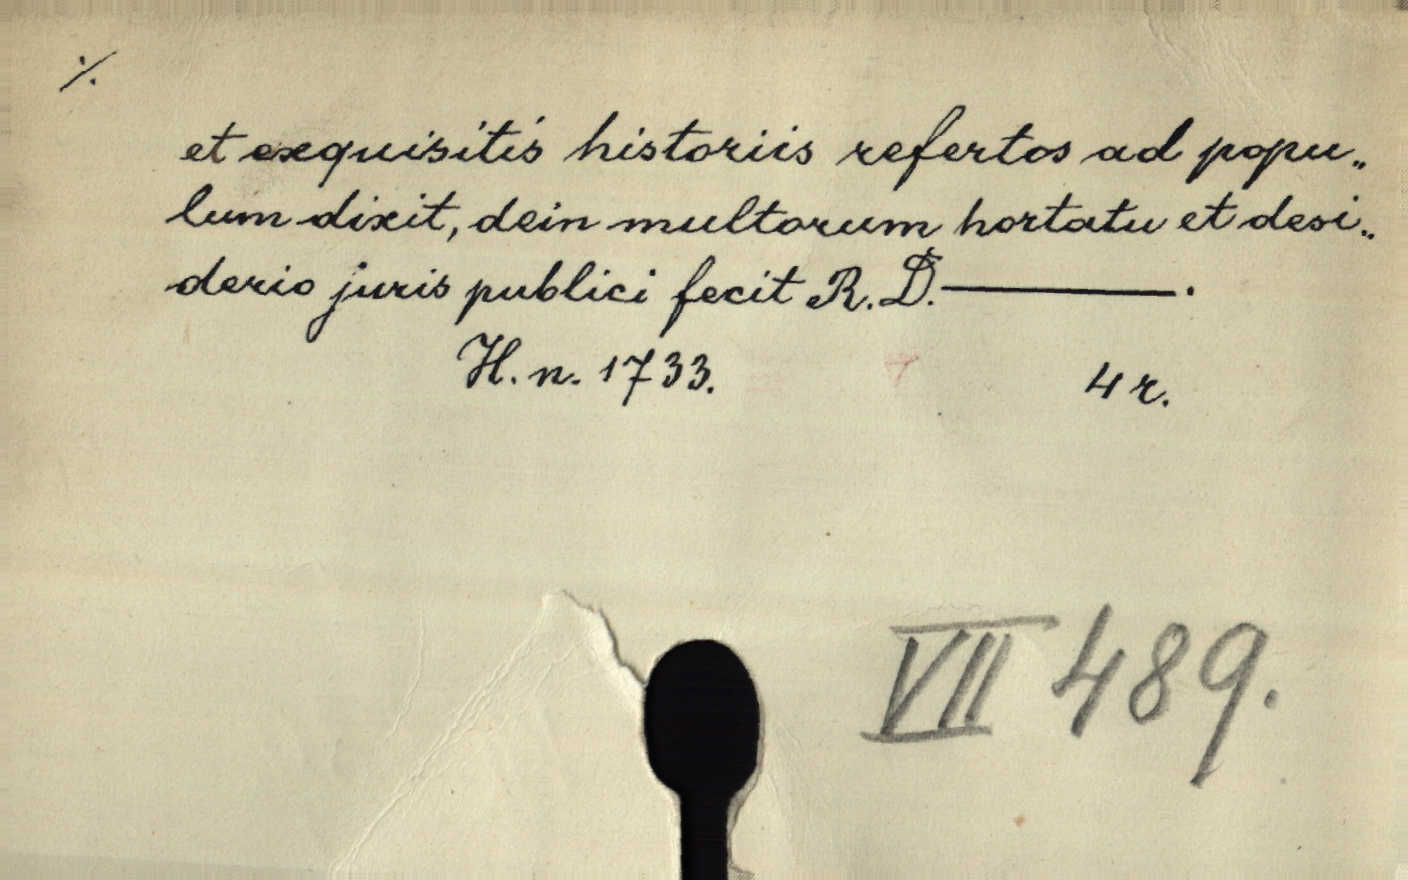 ./.
et exquisitis historiis refertos ad popu„
lum dixit, dein multorum hortatu et desi„
derio juris publici fecit R. D. ———.
H. n. 1733. 4 r.
VII 489.